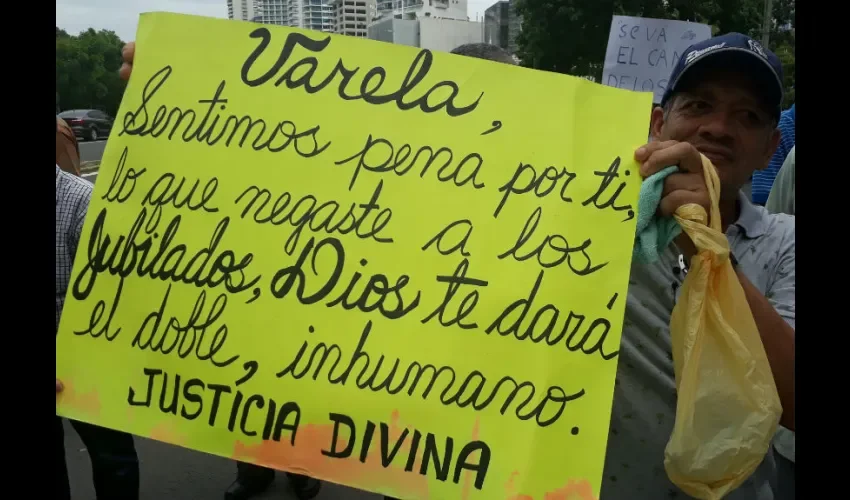 Varela,
Sentimos pena por ti,
lo que negaste a los
Jubilados, Dios te dará
el doble, inhumano.
JUSTICIA DIVINA
SE VA
EL CAN
DE LOS